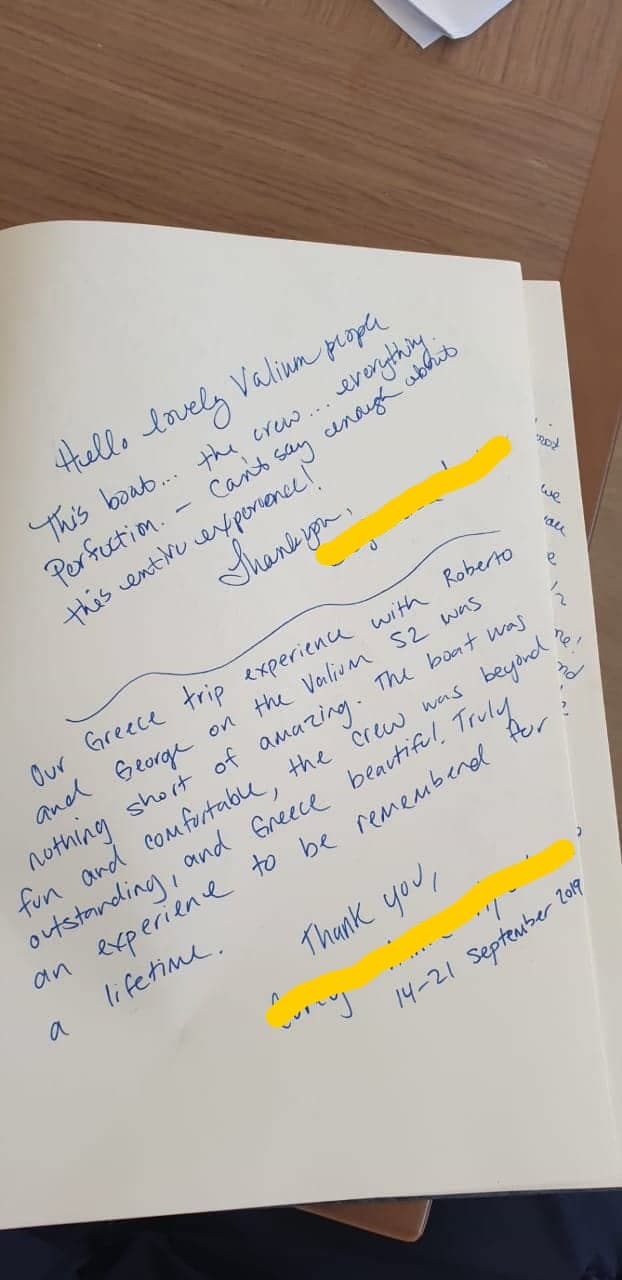 Hello lovely Valium people
This boat... the crew... everything.
Perfection. - Can't say enough about
this entire experience!
Thank you,
Our Greece trip experience with Roberto
and George on the Valium 52 was
nothing short of amazing. The boat was
fun and comfortable, the crew was beyond
outstanding, and Greece beautiful. Truly
an experience to be remembered for
a lifetime.
Thank you,
14-21 September 2019
we